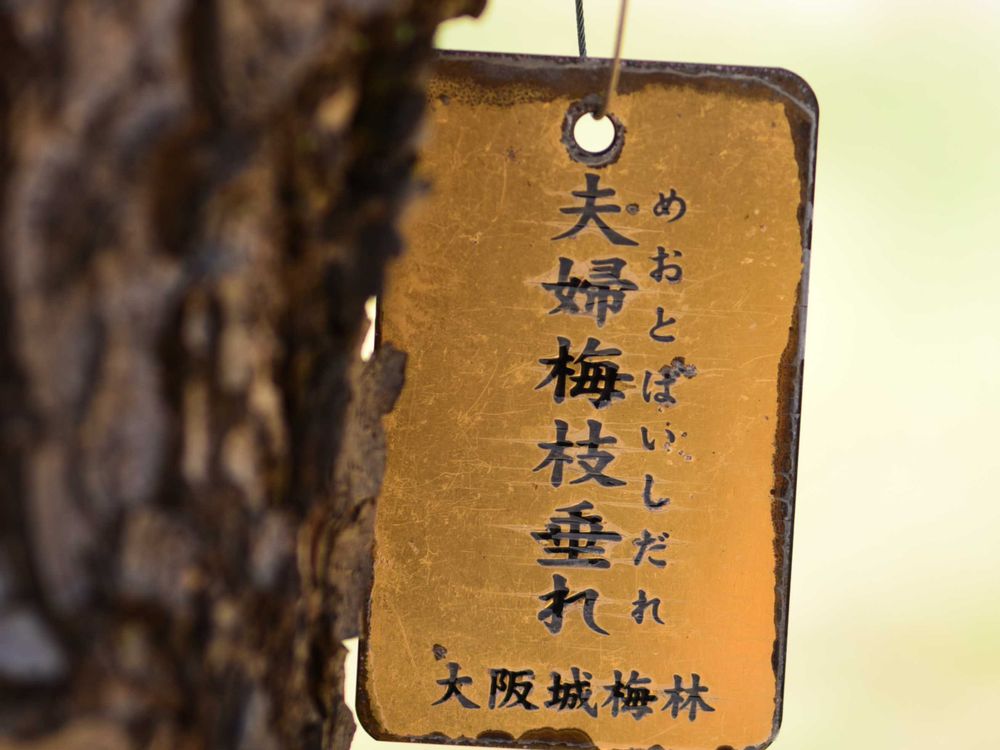 めおとばいしだれ
夫婦梅枝垂れ
大阪城梅林